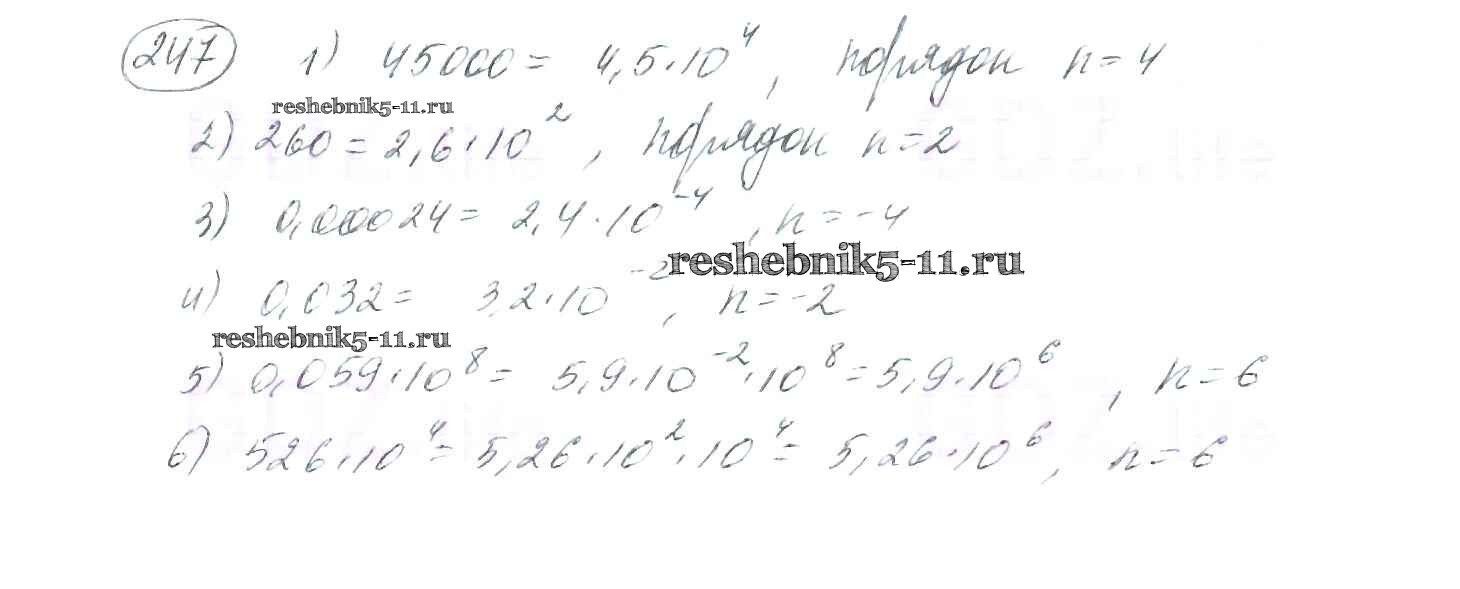 247 1) 45000 = 4,5·10⁴, порядок n=4
reshebnik5-11.ru
2) 260 = 2,6·10², порядок n=2
3) 0,00024 = 2,4·10⁻⁴, n=-4
reshebnik5-11.ru
4) 0,032 = 3,2·10⁻², n=-2
reshebnik5-11.ru
5) 0,059·10⁸ = 5,9·10⁻²·10⁸ = 5,9·10⁶, n=6
6) 526·10⁴ = 5,26·10²·10⁴ = 5,26·10⁶, n=6